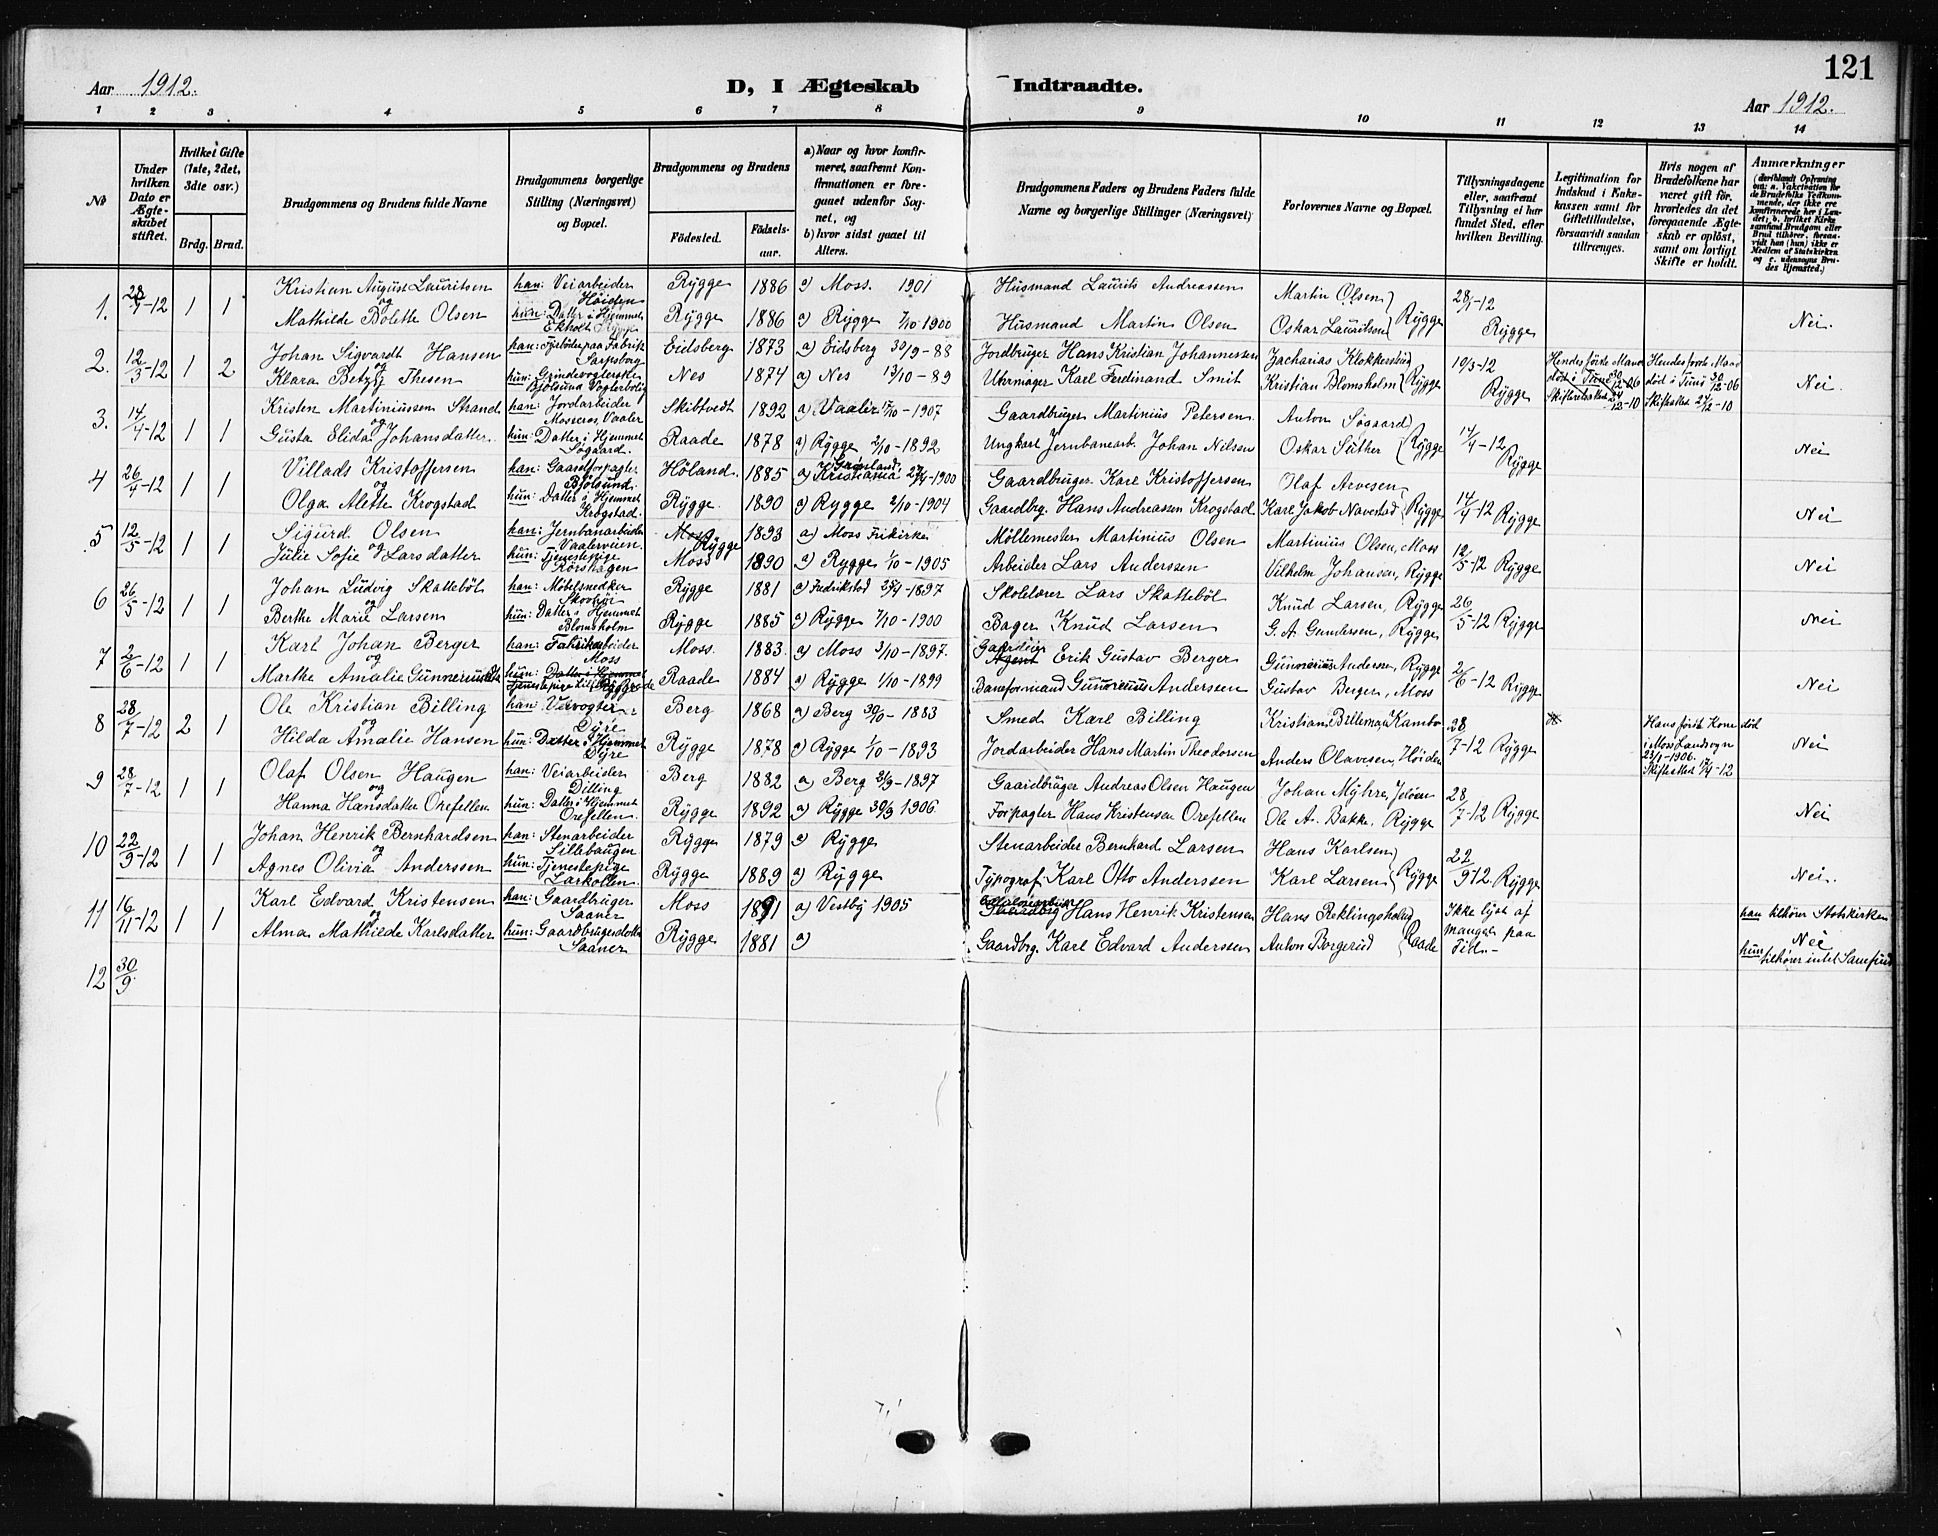 121
Aar 1912.
D, I Ægteskab Indtraadte.
Aar 1912.
1 2 3 4 5 6 7 8 9 10 11 12 13 14
No
Under hvilken Dato er Ægteskabet stiftet.
Hvilket Gifte (1ste, 2det, 3die osv.)
Brdg. Brud.
Brudgommens og Brudens fulde Navne
Brudgommens borgerlige Stilling (Næringsvei) og Bopæl.
Brudgommens og Brudens
Födested. Födselsaar.
a) Naar og hvor konfirmeret, saafremt Konfirmationen er foregaaet udenfor Sognet, og
b) hvor sidst gaaet til Alters.
Brudgommens Faders og Brudens Faders fulde Navne og borgerlige Stillinger (Næringsvei)
Forlovernes Navne og Bopæl.
Tillysningsdagene eller, saafremt Tillysning ei har fundet Sted, efter hvilken Bevilling.
Legitimation for Indskud i Enkekassen samt for Giftetilladelse, forsaavidt saadan tiltrænges.
Hvis nogen af Brudefolkene har været gift för, hvorledes da det foregaaende Ægteskab er oplöst, samt om lovligt Skifte er holdt.
Anmærkninger
(deriblandt Oplysning om: a. Vakcination for de Brudefolks Vedkommende, der ikke ere konfirmerede her i Landet; b. hvilket Kirkesamfund Brudgom eller Brud tilhörer, forsaavidt han (hun) ikke er Medlem af Statskirken og c. udensogns Brudes Hjemsted.)
1. 28/1-12 1 1 Kristian August Lauritsen han: Veiarbeider Höiden Rygge 1886 a) Moss. 1901 Husmand Laurits Andreassen Martin Olsen 28/1-12
og Mathilde Bolette Olsen hun: Datter i Hjemmet Ekholt Rygge Rygge 1886 a) Rygge 7/10-1900 Husmand Martin Olsen Oskar Lauritsen Rygge Rygge Nei.
2. 12/3-12 1 2 Johan Sigvardt Hansen han: Fyrböder paa Fabrik Sarpsborg Eidsberg 1873 a) Eidsberg 30/9-88 Jordbruger Hans Kristian Johannessen Zacharias Klokkerstud 10/3-12 Hendes förste Mand död i Tune 30/12-06 Skifteattest 24/12-10 Hendes förste Mand död i Tune 30/12-06 Skifteattest 24/12-10
og Klara Betzy Thesen hun: Grindevogterske Bjölsund Vogterbolig Nes 1874 a) Nes 13/10-89 Uhrmager Karl Ferdinand Smit Kristian Blomsholm Rygge Rygge Nei
3. 14/4-12 1 1 Kristen Martiniussen Strand han: Jordarbeider Mosseros, Vaaler Skibtvedt 1892 a) Vaaler 17/10-1907 Gaardbruger Martinius Petersen Anton Sögaard 14/4-12
og Gusta Elida Johansdatter hun: Datter i Hjemmet Sögaard. Raade 1878 a) Rygge 2/10-1892 Ungkarl Jernbanearb. Johan Nilsen Oskar Suther Rygge Rygge Nei
4 26/4-12 1 1 Villads Kristoffersen han: Gaardforpagter Bjölsund. Höland. 1885 a) Grönland Kristiania 29/4-1900 Gaardbruger Karl Kristoffersen Olaf Arvesen 14/4-12
og Olga Alette Krogstad hun: Datter i Hjemmet Krogstad. Rygge 1890 a) Rygge 2/10-1904 Gaardbrg. Hans Andreassen Krogstad Karl Jakob Navestad Rygge Rygge Nei
5 12/5-12 1 1 Sigurd Olsen han: Jernbanarbeider Vaalerveien Moss Rygge 1893 a) Moss Frikirke Möllemester Martinius Olsen Martinius Olsen, Moss 12/5-12 Rygge
og Julie Sofie Larsdatter hun: Tjenestepige Körshagen Moss 1890 a) Rygge 1/10-1905 Arbeider Lars Anderssen Vilhelm Johansen, Rygge Nei
6 26/5-12 1 1 Johan Ludvig Skatteböl han: Möbelsnedker Rygge 1881 a) Fredrikstad 25/4-1897 Skolelærer Lars Skatteböl Knud Larsen, Rygge 26/5-12 Rygge
og Berthe Marie Larsen hun: Datter i Hjemmet Blomsholm Rygge 1885 a) Rygge 7/10-1900 Bager Knud Larsen G. A. Gundersen, Rygge Nei
7 2/6-12 1 1 Karl Johan Berger han: Fabrikarbeider Moss Moss. 1883. a) Moss 3/10-1897. Gaardeier Agent Erik Gustav Berger Gunnerius Andersen, Rygge 2/6-12 Rygge
og Marthe Amalie Gunneriusdtr hun: Datter i Hjemmet Tjenestepige Raade 1884 a) Rygge 1/10-1899 Baneformand Gunnerius Anderssen Gustav Berger, Moss Nei
8 28/7-12 2 1 Ole Kristian Billing han: Veivogter Dyre Berg 1868 a) Berg 30/10-1883 Smed Karl Billing Kristian Brilleman, Kambo 28/7-12 Rygge Hans förste Kone död i Moss Landsogn 21/1-1906. Skifteattest 17/4-12
og Hilda Amalie Hansen hun: Datter i Hjemmet Dyre Rygge 1878 a) Rygge 1/10-1893 Jordarbeider Hans Martin Theodorsen Anders Olavesen, Höiden Nei
9 28/7-12 1 1 Olaf Olsen Haugen han: Veiarbeider Dilling Berg 1882 a) Berg 3/9-1897 Gaardbruger Andreas Olsen Haugen Johan Myhre, Jelöen 28/7-12 Rygge
og Hanna Hansdatter Orefellen hun: Datter i Hjemmet Orefellen. Rygge 1892 a) Rygge 30/9 1906. Forpagter Hans Kristensen Orefellen Ole A. Bakke, Rygge Nei
10 22/9-12 1 1 Johan Henrik Bernhardsen han: Stenarbeider Sillebaugen Rygge 1879 a) Rygge Stenarbeider Bernhard Larsen Hans Karlsen 22/9 12. Rygge
og Agnes Olivia Anderssen hun: Tjenestepige Larkollen Rygge 1889 a) Rygge Typograf Karl Otto Anderssen Karl Larsen Rygge Nei.
11 16/11-12 1 1 Karl Edvard Kristensen han: Gaardbruger Saaner Moss 1891 a) Vestby 1905 Gaardbrg Hans Henrik Kristensen Hans Reklingsholm Ikke lyst af mangel paa Tid.- han tilhörer Statskirken
og Alma Mathilde Karlsdatter hun: Gaardbrugerdatter Saaner Rygge 1881 a) Gaardbrg. Karl Edvard Anderssen Anton Borgerud Raade Nei hun tilhörer intet Samfund
12 30/9